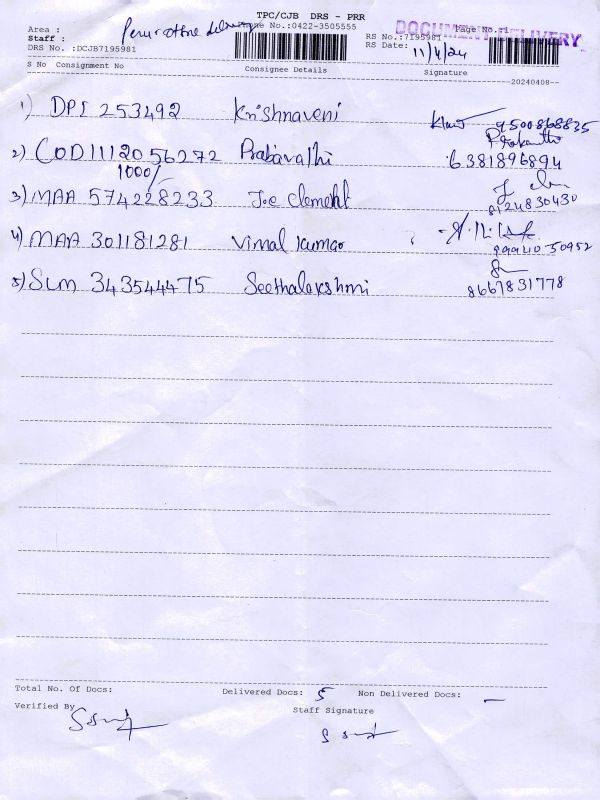 TPC/CJB DRS - PRR
Area :
Phone No.:0422-3505555
Page No.:1
DOCUMENT DELIVERY
Staff :
RS No.:7195981
DRS No. :DCJB7195981
RS Date: 11/4/24
S No Consignment No Consignee Details Signature
20240408
1) DPI 253492 Krishnaveni 9500868835
2) COD1112056272 Prabavathi 6381896894
1000/
3) MAA 574228233 Joe Clement 8124830430
4) MAA 301181281 Vimal Kumar 99940 50952
5) SLM 343544475 Seethalekshmi 8667831778
Total No. Of Docs: Delivered Docs: 5 Non Delivered Docs: —
Verified By
Staff Signature